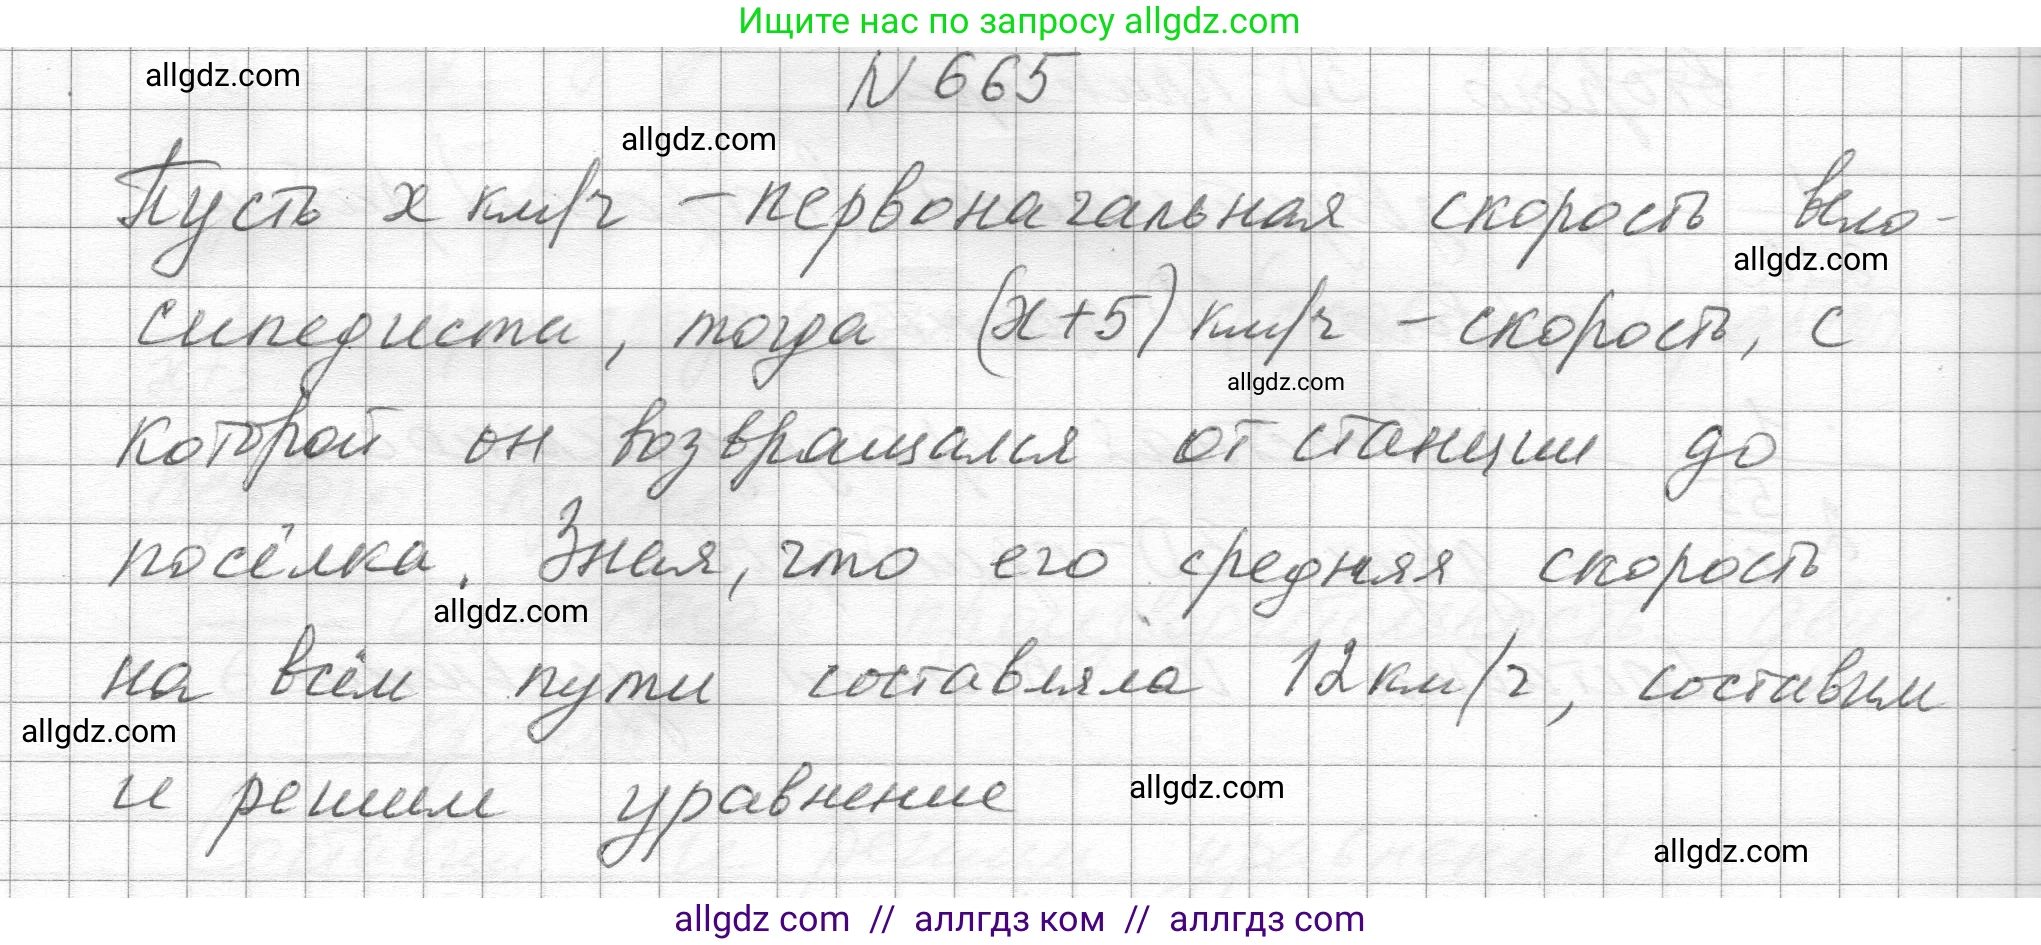 Ищите нас по запросу allgdz.com
N 665
allgdz.com
allgdz.com
Пусть x км/ч - первоначальная скорость вело-
allgdz.com
сипедиста, тогда (x+5) км/ч - скорость, с
allgdz.com
которой он возвращался от станции до
посёлка. Зная, что его средняя скорость
allgdz.com
на всём пути составляла 12 км/ч, составим
allgdz.com
и решим уравнение
allgdz.com
allgdz.com
allgdz com // аллгдз ком // аллгдз com